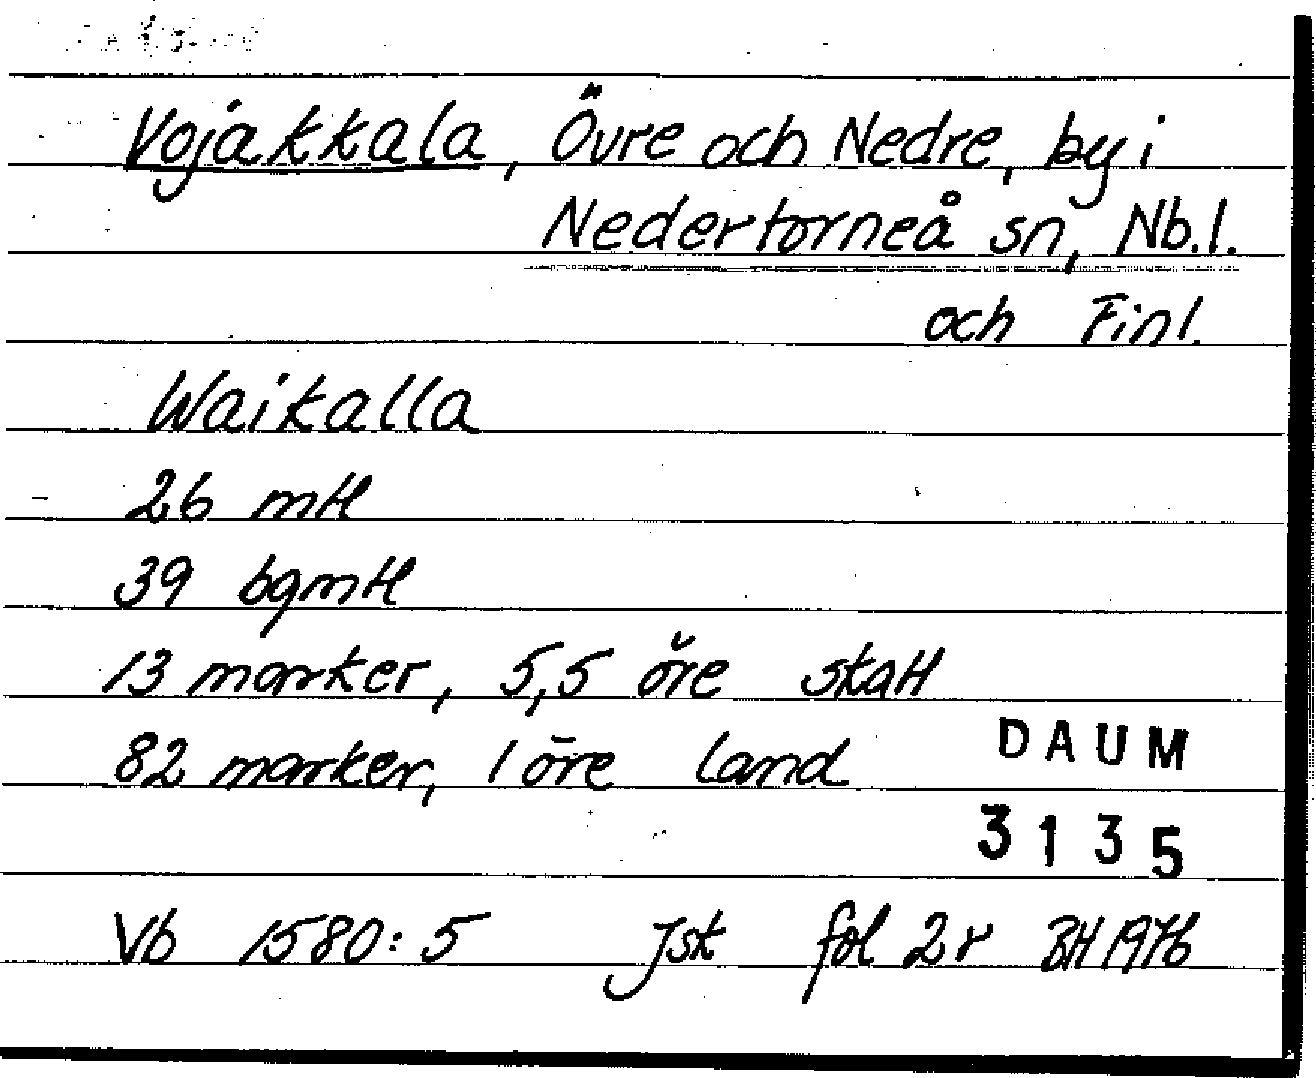 Vojakkala, Övre och Nedre, by i
Nedertorneå sn, Nb.l.
och Finl.
Waikalla
26 mtl
39 bgmtl
13 marker, 5,5 öre skatt
82 marker, 1 öre land
DAUM
3135
Vb 1580:5 Jsk fol 2r BH 1976